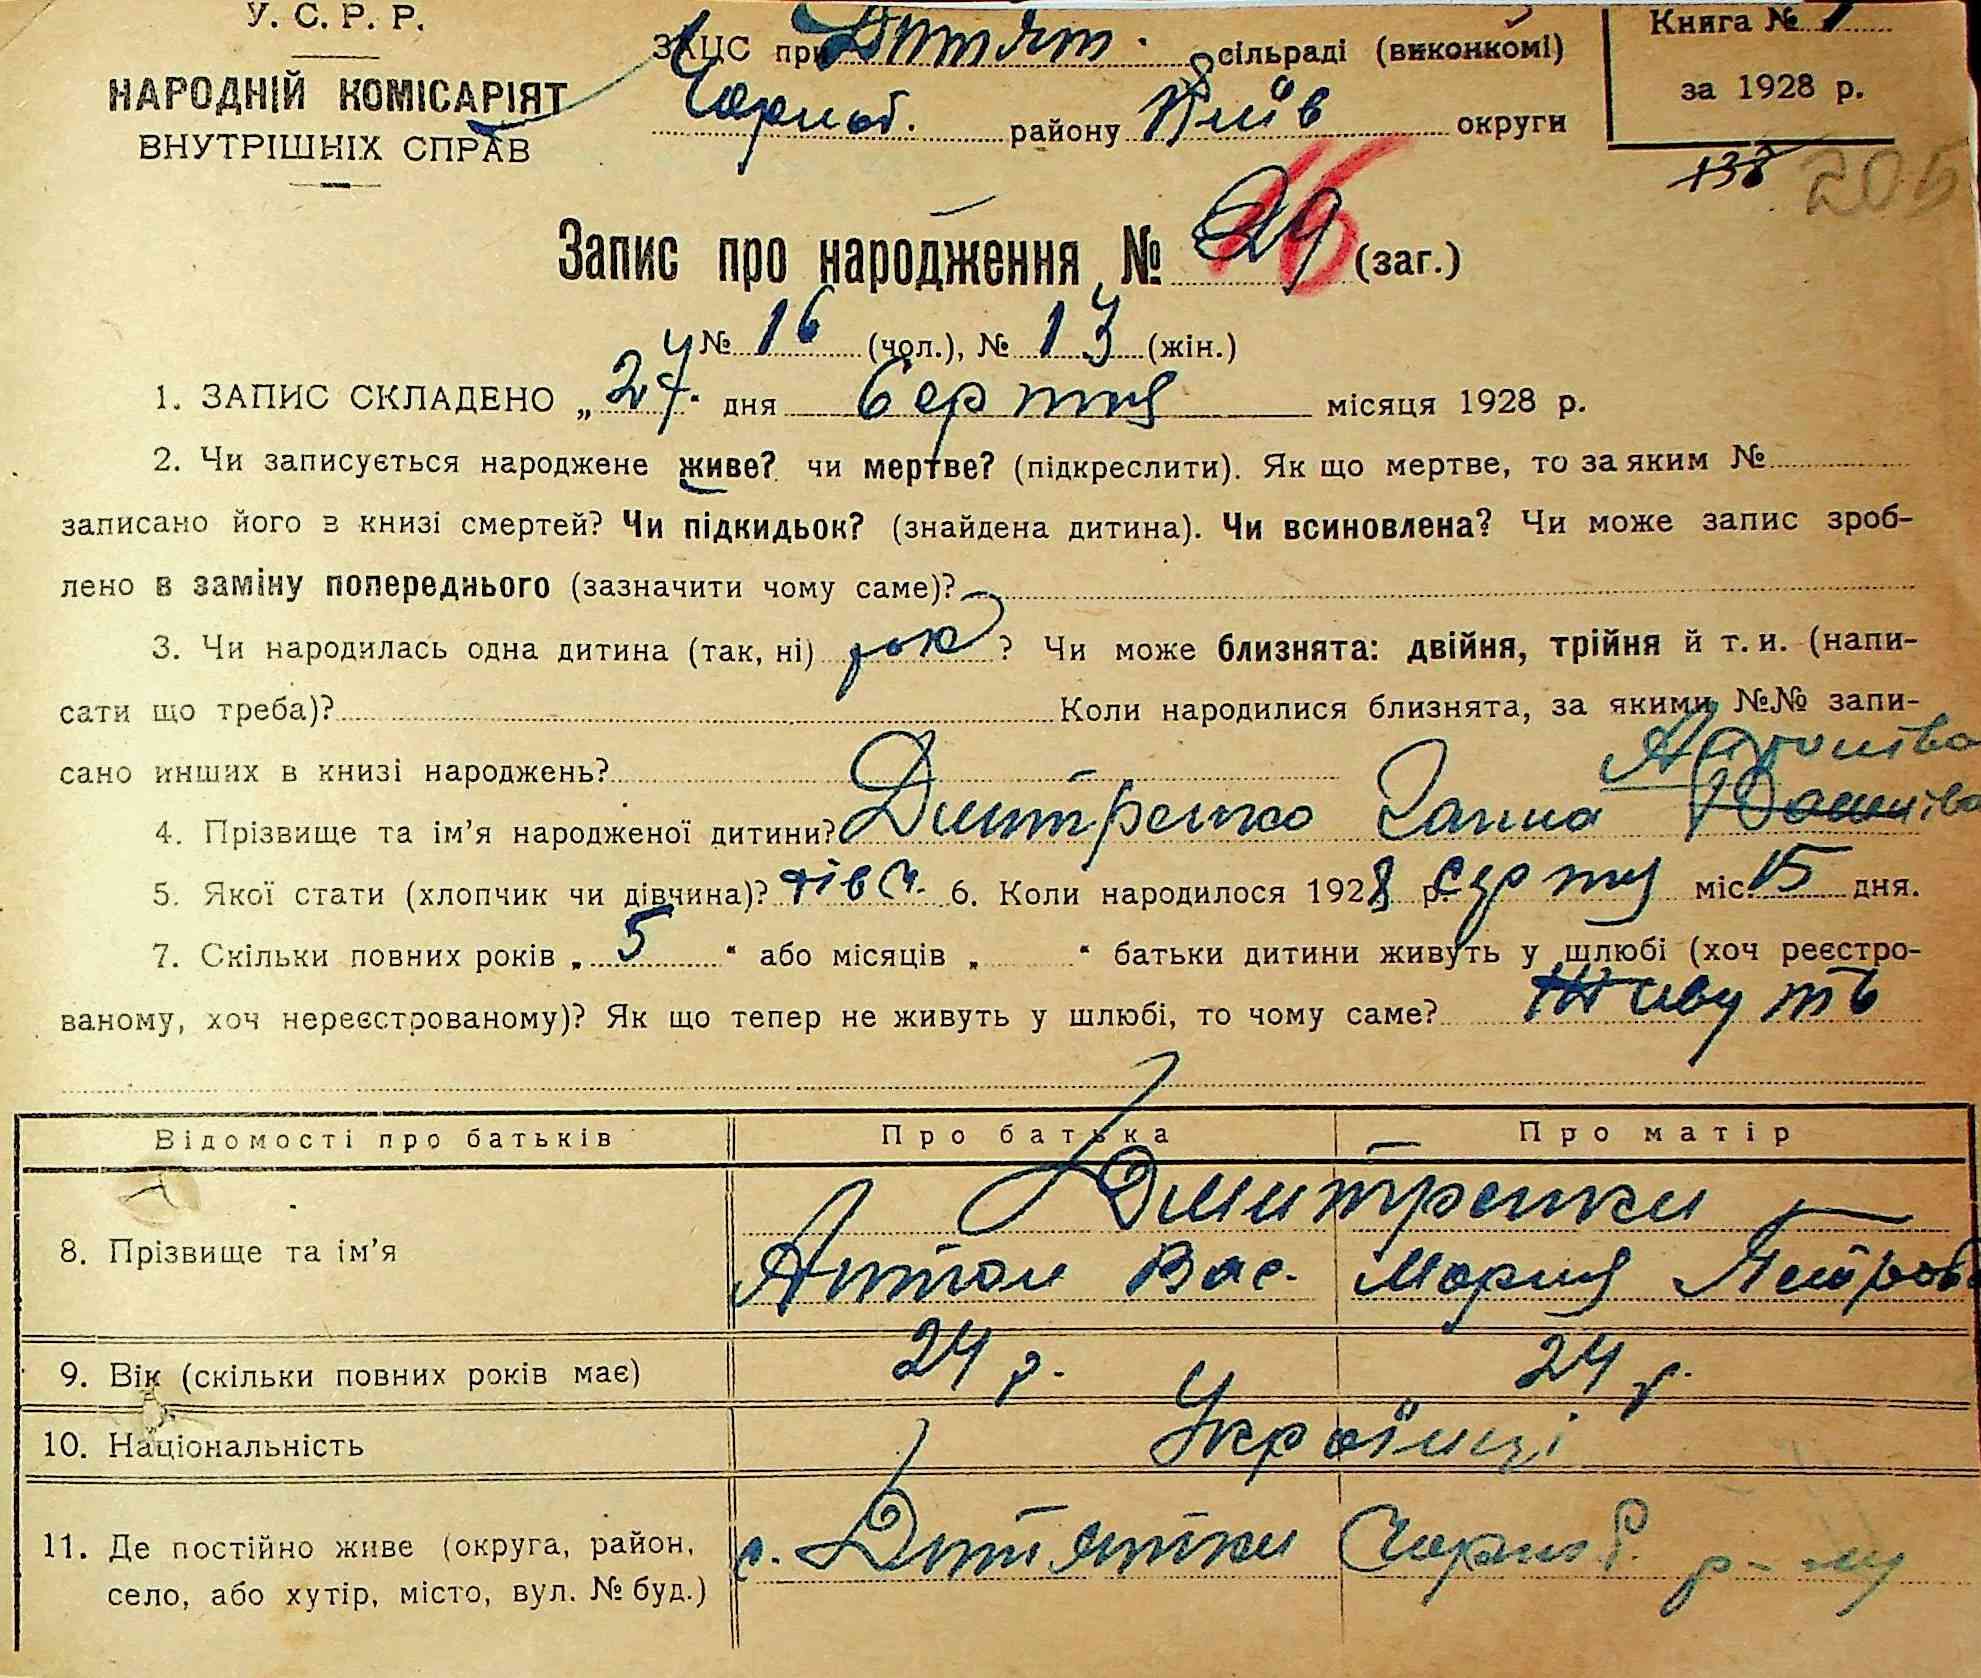 У. С. Р. Р.
НАРОДНІЙ КОМІСАРІЯТ
ВНУТРІШНІХ СПРАВ
ЗАЦС при Дитят. сільраді (виконкомі)
Чорноб. району Київ округи
Книга № 1
за 1928 р.
138 205
Запис про народження № 29 (заг.)
16
№ 16 (чол.), № 13 (жін.)
1. ЗАПИС СКЛАДЕНО „ 27 “ дня Серпня місяця 1928 р.
2. Чи записується народжене живе? чи мертве? (підкреслити). Як що мертве, то за яким №
записано його в книзі смертей? Чи підкидьок? (знайдена дитина). Чи всиновлена? Чи може запис зроб-
лено в заміну попереднього (зазначити чому саме)?
3. Чи народилась одна дитина (так, ні) ? Чи може близнята: двійня, трійня й т. и. (напи-
сати що треба)? Коли народилися близнята, за якими №№ запи-
сано инших в книзі народжень?
4. Прізвище та ім’я народженої дитини? Дмитренко Ганна
5. Якої стати (хлопчик чи дівчина)? дівч. 6. Коли народилося 1928 р. Серпня міс. 15 дня.
7. Скільки повних років „ 5 “ або місяців „ “ батьки дитини живуть у шлюбі (хоч реєстро-
ваному, хоч нереєстрованому)? Як що тепер не живуть у шлюбі, то чому саме? Живуть
Відомості про батьків Про батька Про матір
Дмитренки
8. Прізвище та ім’я Антон Вас. Мария Петров
9. Вік (скільки повних років має) 24 р. 24 р.
10. Національність Україиці
11. Де постійно живе (округа, район, с. Дитятки Чорноб. р-ну
село, або хутір, місто, вул. № буд.)